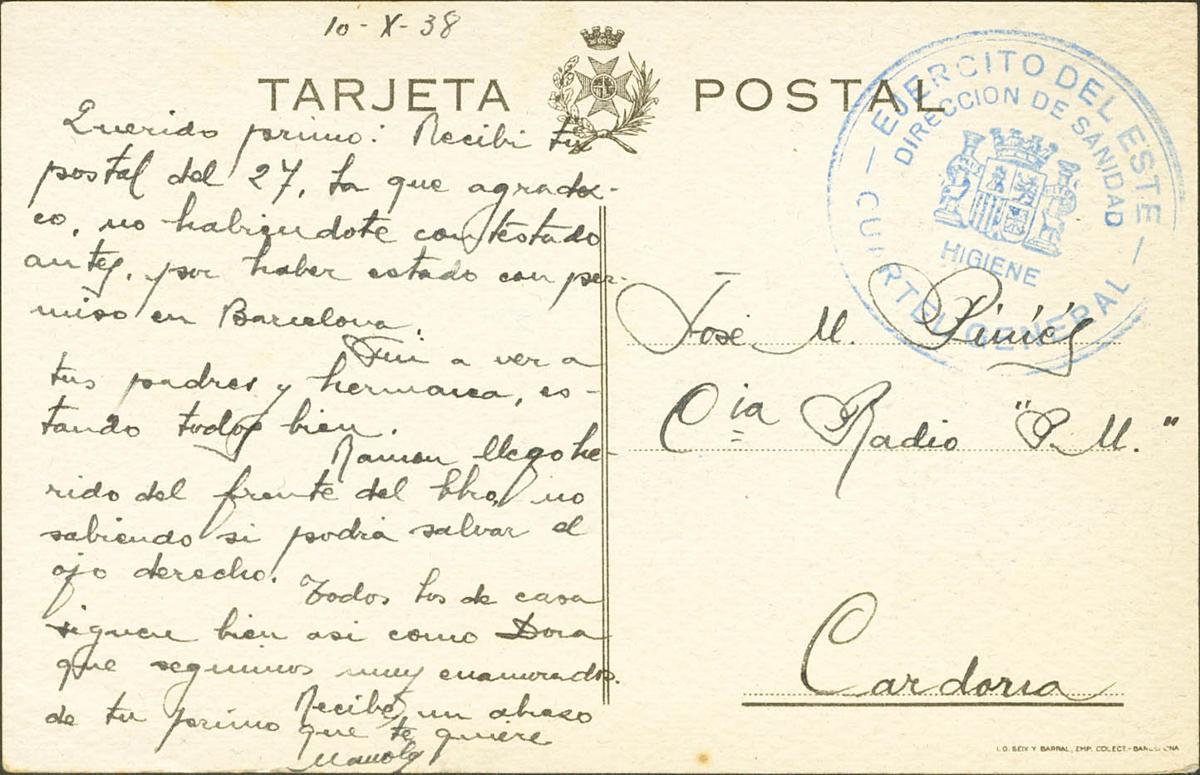 10-X-38
TARJETA POSTAL
Querido primo: Recibi tu
postal del 27, la que agradez-
co, no habiendote contestado
antes, por haber estado con per-
miso en Barcelona.
Fui a ver a
tus padres y hermana, es-
tando todos bien.
Ramon llego he-
rido del frente del Ebro, no
sabiendo si podra salvar el
ojo derecho.
Todos los de casa
siguen bien asi como Dora
que seguimos muy enamorados.
Recibe un abraso
de tu primo que te quiere
Manolo
EJERCITO DEL ESTE
DIRECCION DE SANIDAD
HIGIENE
CUARTEL GENERAL
José M. Piniés
Cia Radio "P. M."
Cardona
I. G. SEIX Y BARRAL, EMP. COLECT.-BARCELONA